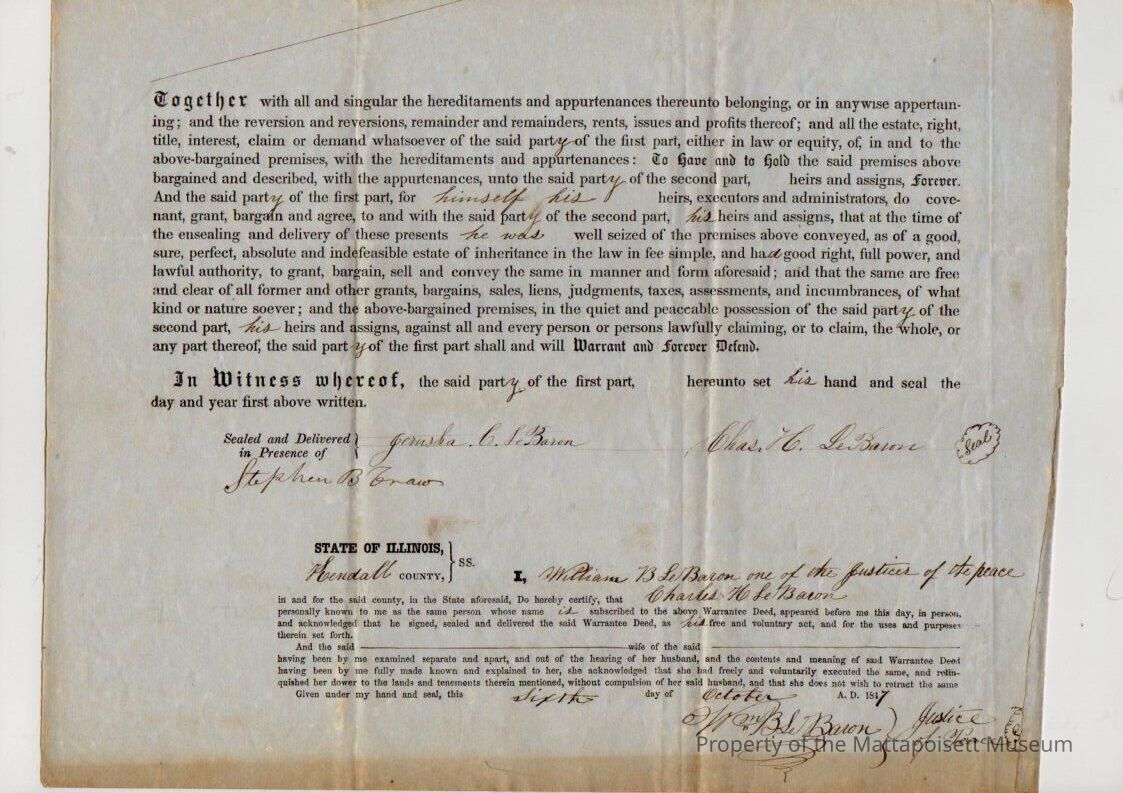 Together with all and singular the hereditaments and appurtenances thereunto belonging, or in anywise appertain-
ing; and the reversion and reversions, remainder and remainders, rents, issues and profits thereof; and all the estate, right,
title, interest, claim or demand whatsoever of the said party of the first part, either in law or equity, of, in and to the
above-bargained premises, with the hereditaments and appurtenances: To Have and to Hold the said premises above
bargained and described, with the appurtenances, unto the said party of the second part, heirs and assigns, Forever.
And the said party of the first part, for himself his heirs, executors and administrators, do cove-
nant, grant, bargain and agree, to and with the said party of the second part, his heirs and assigns, that at the time of
the ensealing and delivery of these presents he was well seized of the premises above conveyed, as of a good,
sure, perfect, absolute and indefeasible estate of inheritance in the law in fee simple, and had good right, full power, and
lawful authority, to grant, bargain, sell and convey the same in manner and form aforesaid; and that the same are free
and clear of all former and other grants, bargains, sales, liens, judgments, taxes, assessments, and incumbrances, of what
kind or nature soever; and the above-bargained premises, in the quiet and peaccable possession of the said party of the
second part, his heirs and assigns, against all and every person or persons lawfully claiming, or to claim, the whole, or
any part thereof, the said party of the first part shall and will Warrant and Forever Defend.
In Witness whereof, the said party of the first part, hereunto set his hand and seal the
day and year first above written.
Sealed and Delivered } Jerusha C. LeBaron Chas. H. LeBaron Seal
in Presence of
Stephen B
STATE OF ILLINOIS,
Kendall COUNTY, } SS. I, William B LeBaron one of the Justices of the peace
in and for the said county, in the State aforesaid, Do hereby certify, that Charles H LeBaron
personally known to me as the same person whose name is subscribed to the above Warrantee Deed, appeared before me this day, in person,
and acknowledged that he signed, sealed and delivered the said Warrantee Deed, as his free and voluntary act, and for the uses and purposes
therein set forth.
And the said wife of the said
having been by me examined separate and apart, and out of the hearing of her husband, and the contents and meaning of said Warrantee Deed
having been by me fully made known and explained to her, she acknowledged that she had freely and voluntarily executed the same, and relin-
quished her dower to the lands and tenements therein mentioned, without compulsion of her said husband, and that she does not wish to retract the same
Given under my hand and seal, this sixth day of October A. D. 1847
Wm B Le Baron } Justice
of Peace
Property of the Mattapoisett Museum